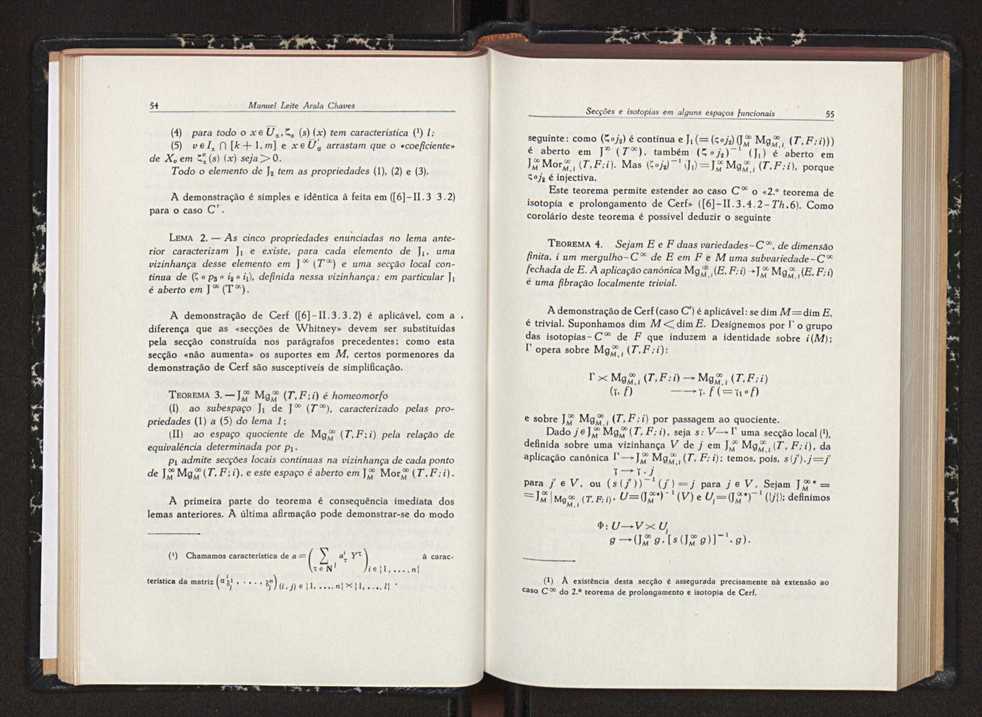 54 Manuel Leite Arala Chaves
(4) para todo o x ∈ U̅ₛ, ζₐ (s) (x) tem característica (¹) l;
(5) v ∈ Iₛ ∩ [k + 1, m] e x ∈ U̅'ₛ arrastam que o «coeficiente»
de Xᵥ em (s) (x) seja > 0.
Todo o elemento de J₂ tem as propriedades (1), (2) e (3).
A demonstração é simples e idêntica à feita em ([6]-II.3 3.2)
para o caso Cʳ.
LEMA 2. — As cinco propriedades enunciadas no lema ante-
rior caracterizam J₁ e existe, para cada elemento de J₁, uma
vizinhança desse elemento em J^∞ (T^∞) e uma secção local con-
tínua de (ζ ∘ p₃ ∘ i₂ ∘ i₁), definida nessa vizinhança; em particular J₁
é aberto em J^∞ (T^∞).
A demonstração de Cerf ([6]-II.3.3.2) é aplicável, com a
diferença que as «secções de Whitney» devem ser substituídas
pela secção construída nos parágrafos precedentes; como esta
secção «não aumenta» os suportes em M, certos pormenores da
demonstração de Cerf são susceptíveis de simplificação.
TEOREMA 3. — J_M^∞ Mg_M^∞ (T, F; i) é homeomorfo
(I) ao subespaço J₁ de J^∞ (T^∞), caracterizado pelas pro-
priedades (1) a (5) do lema 1;
(II) ao espaço quociente de Mg_{M,i}^∞ (T, F; i) pela relação de
equivalência determinada por p₁.
p₁ admite secções locais contínuas na vizinhança de cada ponto
de J_M^∞ Mg_M^∞ (T, F; i), e este espaço é aberto em J_M^∞ Mor_M^∞ (T, F; i).
A primeira parte do teorema é consequência imediata dos
lemas anteriores. A última afirmação pode demonstrar-se do modo
(¹) Chamamos característica de a = ( ∑_{τ ∈ N^l} a_τ^i Y^τ )_{i ∈ {1, ..., n}} à carac-
terística da matriz
Secções e isotopias em alguns espaços funcionais 55
seguinte: como (ζ∘j₂) é contínua e J₁ (= (ζ∘j₂) (J_M^∞ Mg_{M,i}^∞ (T, F; i)))
é aberto em J^∞ (T^∞), também (ζ∘j₂)⁻¹ (J₁) é aberto em
J_M^∞ Mor_{M,i}^∞ (T, F; i). Mas (ζ∘j₂)⁻¹ (J₁) = J_M^∞ Mg_{M,i}^∞ (T, F; i), porque
ζ∘j₂ é injectiva.
Este teorema permite estender ao caso C^∞ o «2.º teorema de
isotopia e prolongamento de Cerf» ([6]-II.3.4.2-Th.6). Como
corolário deste teorema é possível deduzir o seguinte
TEOREMA 4. Sejam E e F duas variedades-C^∞, de dimensão
finita, i um mergulho-C^∞ de E em F e M uma subvariedade-C^∞
fechada de E. A aplicação canónica Mg_{M,i}^∞ (E, F; i) → J_M^∞ Mg_{M,i}^∞ (E, F; i)
é uma fibração localmente trivial.
A demonstração de Cerf (caso Cʳ) é aplicável: se dim M = dim E,
é trivial. Suponhamos dim M < dim E. Designemos por Γ o grupo
das isotopias-C^∞ de F que induzem a identidade sobre i(M);
Γ opera sobre Mg_{M,i}^∞ (T, F; i):
Γ × Mg_{M,i}^∞ (T, F; i) → Mg_{M,i}^∞ (T, F; i)
(γ, f) ——→ γ. f (= γ₁∘f)
e sobre J_M^∞ Mg_{M,i}^∞ (T, F; i) por passagem ao quociente.
Dado j ∈ J_M^∞ Mg_M^∞ (T, F; i), seja s: V → Γ uma secção local (¹),
definida sobre uma vizinhança V de j em J_M^∞ Mg_{M,i}^∞ (T, F; i), da
aplicação canónica Γ → J_M^∞ Mg_{M,i}^∞ (T, F; i); temos, pois, s(j'). j = j'
γ → γ . j
para j' ∈ V, ou (s (j'))⁻¹ (j') = j para j' ∈ V. Sejam J_M^∞* =
= J_M^∞ | Mg_{M,i}^∞ (T, F; i), U = (J_M^∞*)⁻¹ (V) e U_j = (J_M^∞*)⁻¹ ({j}); definimos
Φ: U → V × U_j
g → (J_M^∞ g, [s (J_M^∞ g)]⁻¹. g).
(1) A existência desta secção é assegurada precisamente na extensão ao
caso C^∞ do 2.º teorema de prolongamento e isotopia de Cerf.